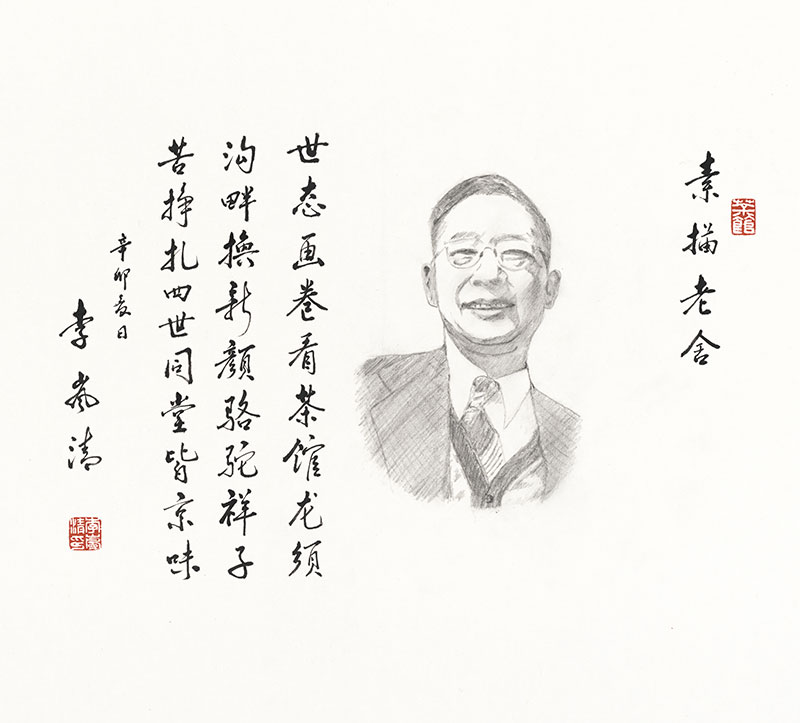 素描老舍
世态画卷看茶馆龙须
沟畔換新颜骆驼祥子
苦挣扎四世同堂皆京味
辛卯夏日
李岚清
李岚清印